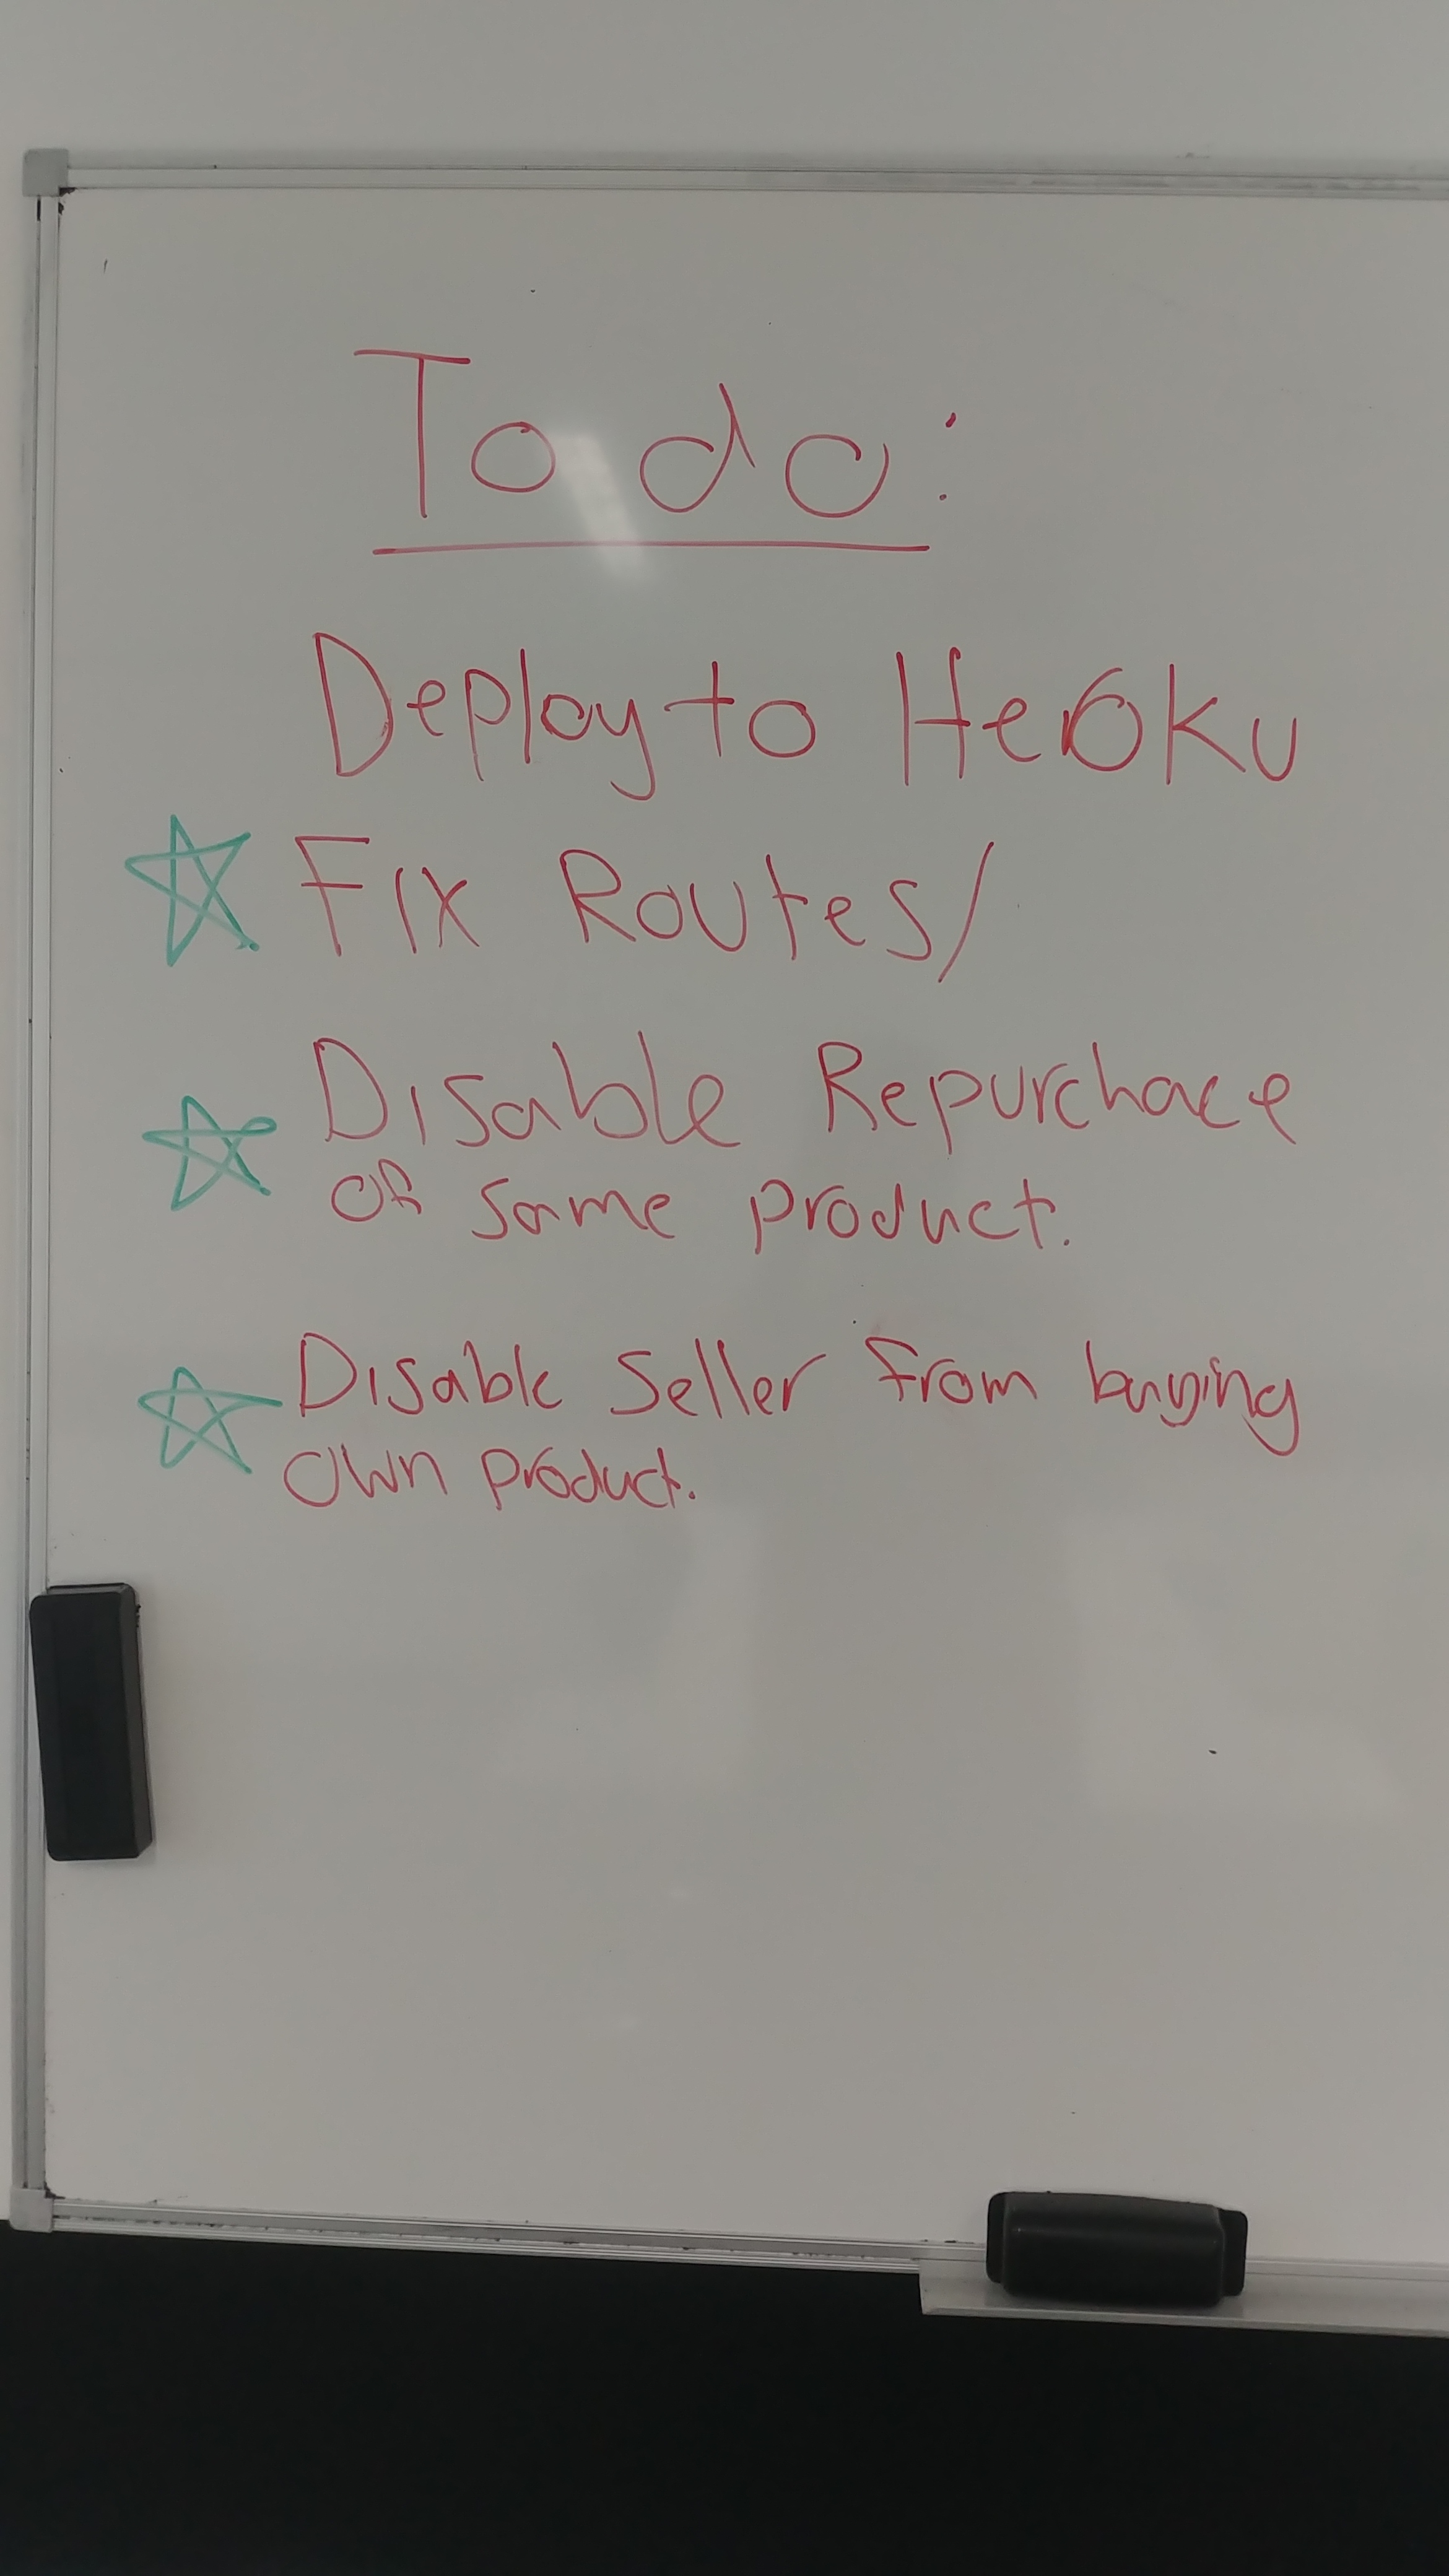 To do:
Deploy to Heroku
Fix Routes/
Disable Repurchace
of same product.
Disable Seller from buying
own product.